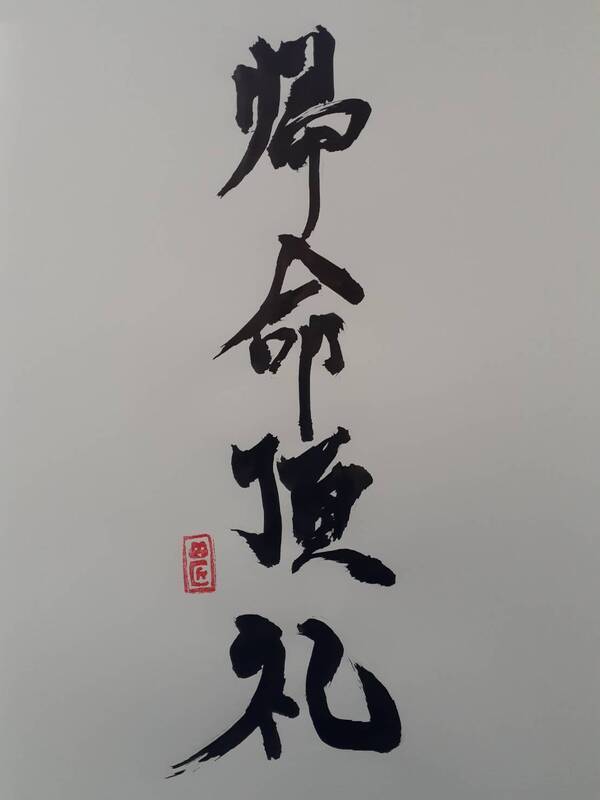 帰命頂礼